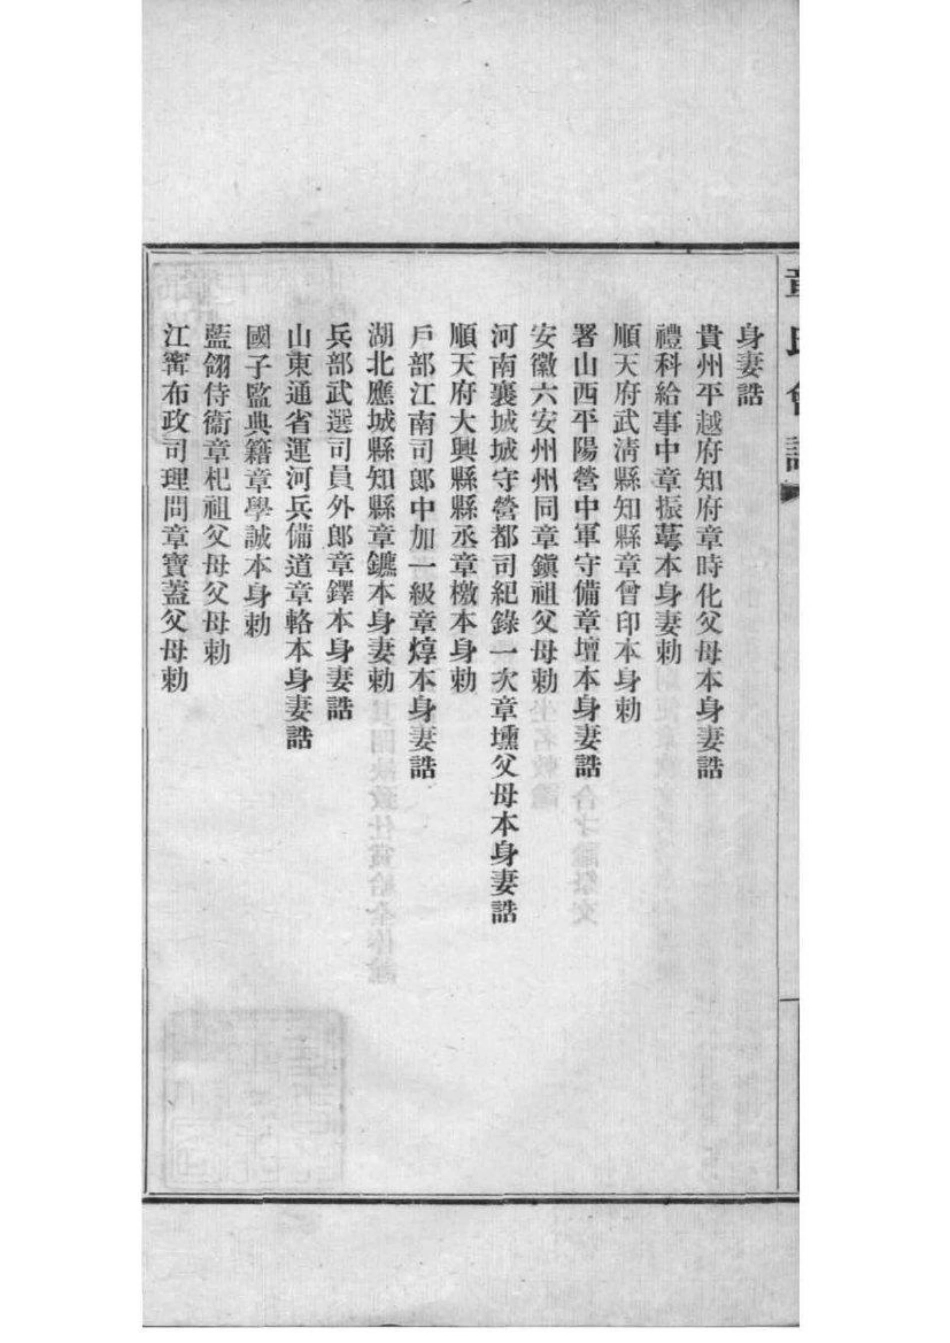 章氏會譜
身妻誥
貴州平越府知府章時化父母本身妻誥
禮科給事中章振萼本身妻勅
順天府武淸縣知縣章曾印本身勅
署山西平陽營中軍守備章壇本身妻誥
安徽六安州州同章鎭祖父母勅
河南襄城城守營都司紀錄一次章壎父母本身妻誥
順天府大興縣縣丞章檄本身勅
戶部江南司郞中加一級章焞本身妻誥
湖北應城縣知縣章鑣本身妻勅
兵部武選司員外郞章鐸本身妻誥
山東通省運河兵備道章輅本身妻誥
國子監典籍章學誠本身勅
藍翎侍衞章杞祖父母父母勅
江寗布政司理問章寶蓋父母勅